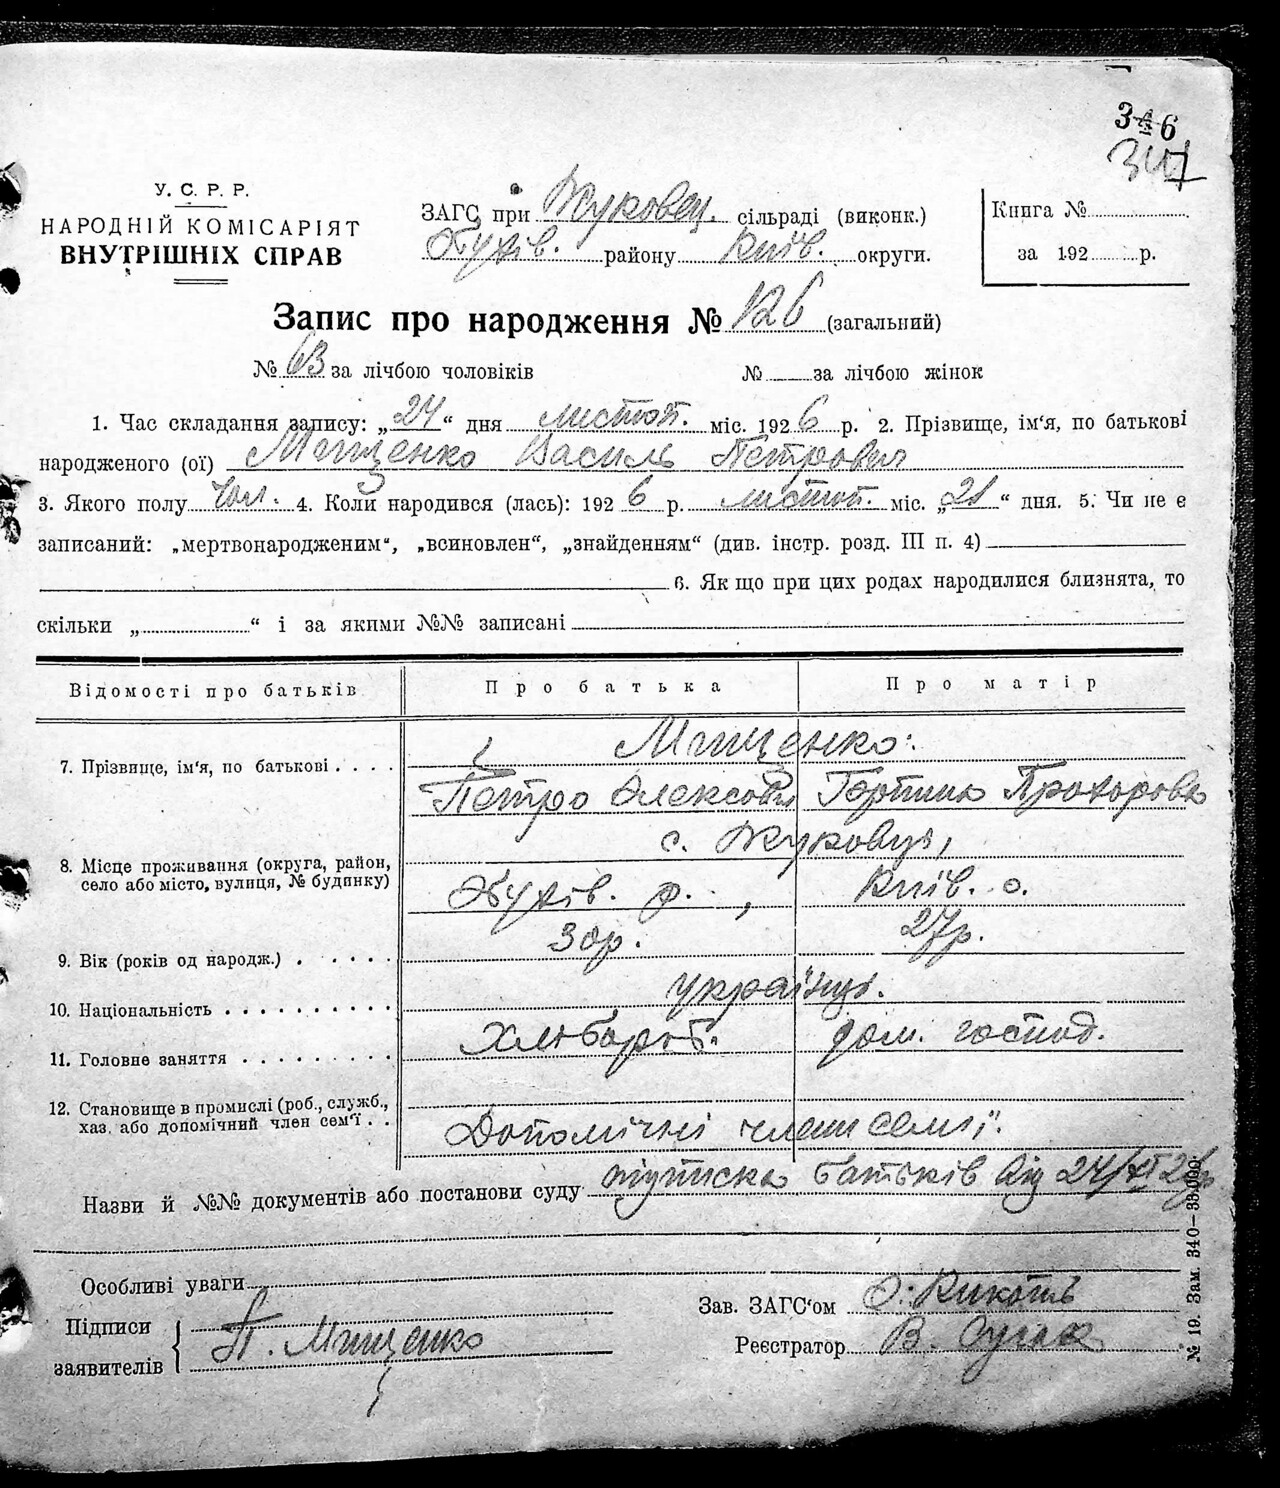 346
347
У. С. Р. Р.
НАРОДНІЙ КОМІСАРІЯТ
ВНУТРІШНІХ СПРАВ
ЗАГС при Жуковец. сільраді (виконк.)
Обухів. району Київ. округи.
Книга №
за 192 р.
Запис про народження № 126 (загальний)
№ 63 за лічбою чоловіків № за лічбою жінок
1. Час складання запису: „24“ дня листоп. міс. 1926 р. 2. Прізвище, ім'я, по батькові
народженого (ої) Мищенко Василь Петрович
3. Якого полу Чол. 4. Коли народився (лась): 1926 р. листоп. міс. „21“ дня. 5. Чи не є
записаний: „мертвонародженим“, „всиновлен“, „знайденням“ (див. інстр. розд. III п. 4)
6. Як що при цих родах народилися близнята, то
скільки „ “ і за якими №№ записані
Відомості про батьків Про батька Про матір
Мищенко:
7. Прізвище, ім'я, по батькові . . . . Петро Олексов. Горпина Прохоровна
с. Жуковці,
8. Місце проживання (округа, район,
село або місто, вулиця, № будинку) Обухів. р., Київ. о.
9. Вік (років од народж.) . . . . . 30р. 27р.
10. Національність . . . . . . . . . . українці.
11. Головне заняття . . . . . . . . . Хлібороб. дом. господ.
12. Становище в промислі (роб., служб.,
хаз. або допомічний член сем'ї . . Допомічні члени семії.
Назви й №№ документів або постанови суду підписка батьків від 24/XI 26р
Особливі уваги
Підписи
заявителів П. Мищенко
Зав. ЗАГС'ом О.
Реєстратор В.
№ 19. Зам. 340—33.000